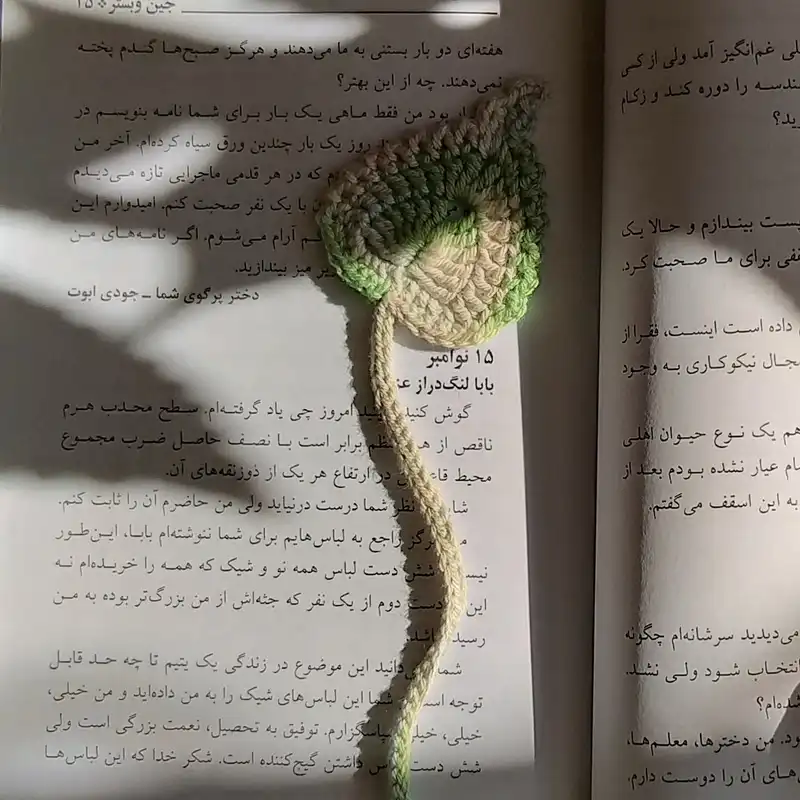 جین وبستر ❖ ۱۵
هفته‌ای دو بار بستنی به ما می‌دهند و هرگز صبح‌ها گندم پخته
نمی‌دهند. چه از این بهتر؟
بود من فقط ماهی یک بار برای شما نامه بنویسم در
روز یک بار چندین ورق سیاه کرده‌ام. آخر من
که در هر قدمی ماجرایی تازه می‌دیدم
با یک نفر صحبت کنم. امیدوارم این
آرام می‌شوم. اگر نامه‌های من
میز بیندازید.
دختر پرگوی شما ـ جودی ابوت
۱۵ نوامبر
بابا لنگ‌دراز
گوش کنید امروز چی یاد گرفته‌ام. سطح محدب هرم
ناقص از برابر است با نصف حاصل ضرب مجموع
محیط در ارتفاع هر یک از ذوزنقه‌های آن.
نظر شما درست درنیاید ولی من حاضرم آن را ثابت کنم.
راجع به لباس‌هایم برای شما ننوشته‌ام بابا، این‌طور
شش دست لباس همه نو و شیک که همه را خریده‌ام نه
این دست دوم از یک نفر که جثه‌اش از من بزرگ‌تر بوده به من
شما این موضوع در زندگی یک یتیم تا چه حد قابل
توجه شما این لباس‌های شیک را به من داده‌اید و من خیلی،
خیلی، سپاسگزارم. توفیق به تحصیل، نعمت بزرگی است ولی
شش دست داشتن گیج‌کننده است. شکر خدا که این لباس‌ها
غم‌انگیز آمد ولی از کمی
هندسه را دوره کند و زکام
بیندازم و حالا یک
برای ما صحبت کرد.
داده است اینست، فقرا از
نیکوکاری به وجود
هم یک نوع حیوان اهلی
تمام عیار نشده بودم بعد از
به این اسقف می‌گفتم.
می‌دیدید سرشانه‌ام چگونه
انتخاب شود ولی نشد.
شده‌ام؟
من دخترها، معلم‌ها،
آن را دوست دارم.